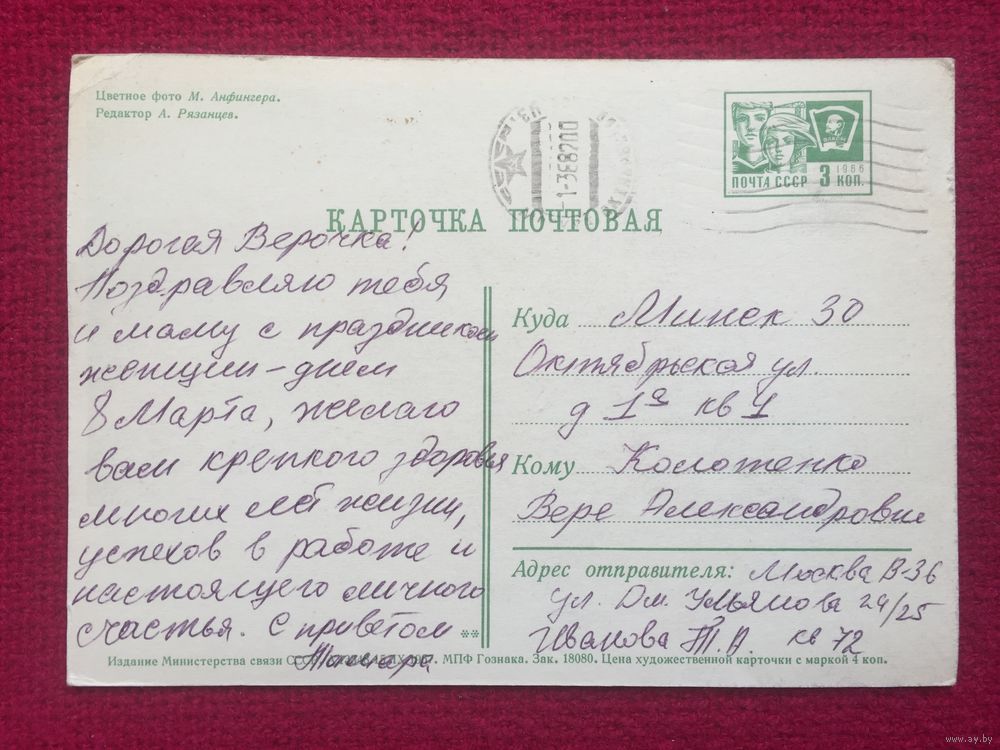 Цветное фото М. Анфингера.
Редактор А. Рязанцев.
ПОЧТА СССР 3 КОП.
1966
ВЛКСМ
КАРТОЧКА ПОЧТОВАЯ
Дорогая Верочка!
Поздравляю тебя
и маму с праздником
женщин – днем
8 Марта, желаю
вам крепкого здоровья
многих лет жизни,
успехов в работе и
настоящего личного
счастья. С приветом
Тамара
Куда Минск 30
Октябрьская ул.
д 1а кв 1
Кому Коложенко
Вере Александровне
Адрес отправителя: Москва В-36
ул. Дм. Ульянова 24/25
Иванова Т. А. кв 72
**
Издание Министерства связи МПФ Гознака. Зак. 18080. Цена художественной карточки с маркой 4 коп.
www.ay.by